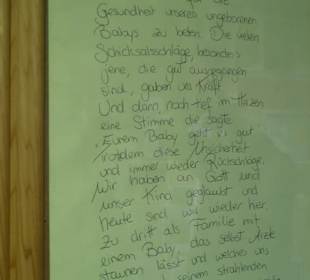 Gesundheit unseres ungeborenen
Babys zu beten. Die vielen
Schicksalsschläge, besonders
jene, die gut ausgegangen
sind, gaben uns Kraft
Und dann, noch tief im Herzen
eine Stimme die sagte
"Eurem Baby geht's gut
Trotzdem diese Unsicherheit
und immer wieder Rückschläge.
Wir haben an Gott und
unser Kind geglaubt und
heute sind wir wieder hier.
Zu dritt als Familie mit
einem Baby, das selbst Ärzte
staunen lässt und welches uns
seinem strahlenden